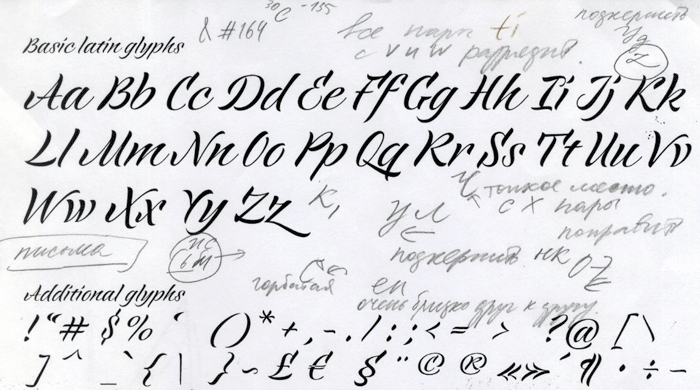 & #164 30 C -155 все пары ti подкернить
Basic latin glyphs с v и w разрядит. Уд
Z
Aa Bb Cc Dd Ee Ff Gg Hh Ii Jj Kk
Ll Mm Nn Oo Pp Qq Rr Ss Tt Uu Vv
тонкое место.
Ww Xx Yy Zz K, УЛ с X пары
поправить
письма подкернить НК OZ
горбатая ел
Additional glyphs очень близко друг к другу.
! “ # $ % ‘ ( ) * + , - . / : ; < = > ? @ [ \
] ^ _ ` { | } ~ £ € § ¨ © ® «» ´ ¶ · ÷ –